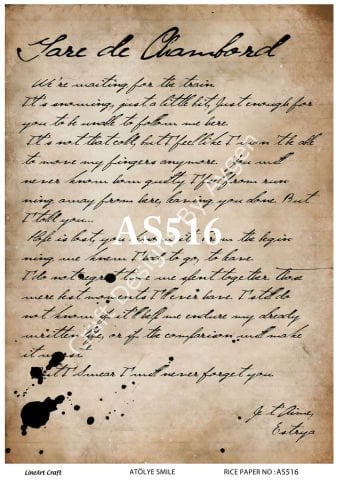 Gare de Chambord
We're waiting for the train
It's snowing, just a little bit, just enough for
you to be unable to follow me here.
It's not that cold, but I feel like I won't be able
to move my fingers anymore. You will
never know how guilty I feel from run
ning away from here, leaving you alone. But
I told you...
Hope is lost, you know it from the begin
ning we knew I had to go, to leave.
I do not regret time we spent together. Those
were best moments I'll ever have. I still do
not know if it'll help me endure my already
written life, or if the comparison will make
it worst.
But I swear I will never forget you.
Je t'aime,
Estrya
AS516
Craft Designs By Yasen
LineArt Craft
ATÖLYE SMILE
RICE PAPER NO : AS516